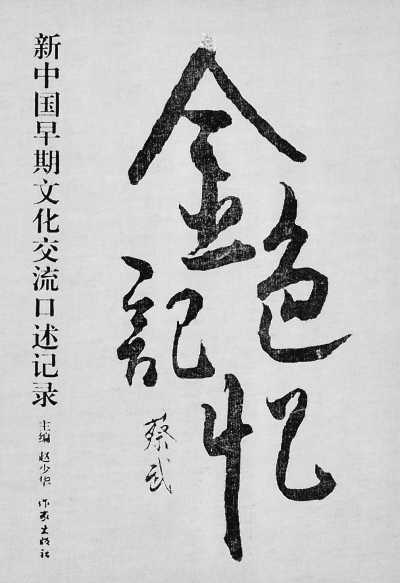 新中国早期文化交流口述记录
金色
記忆
蔡武
主编 赵少华
作家出版社